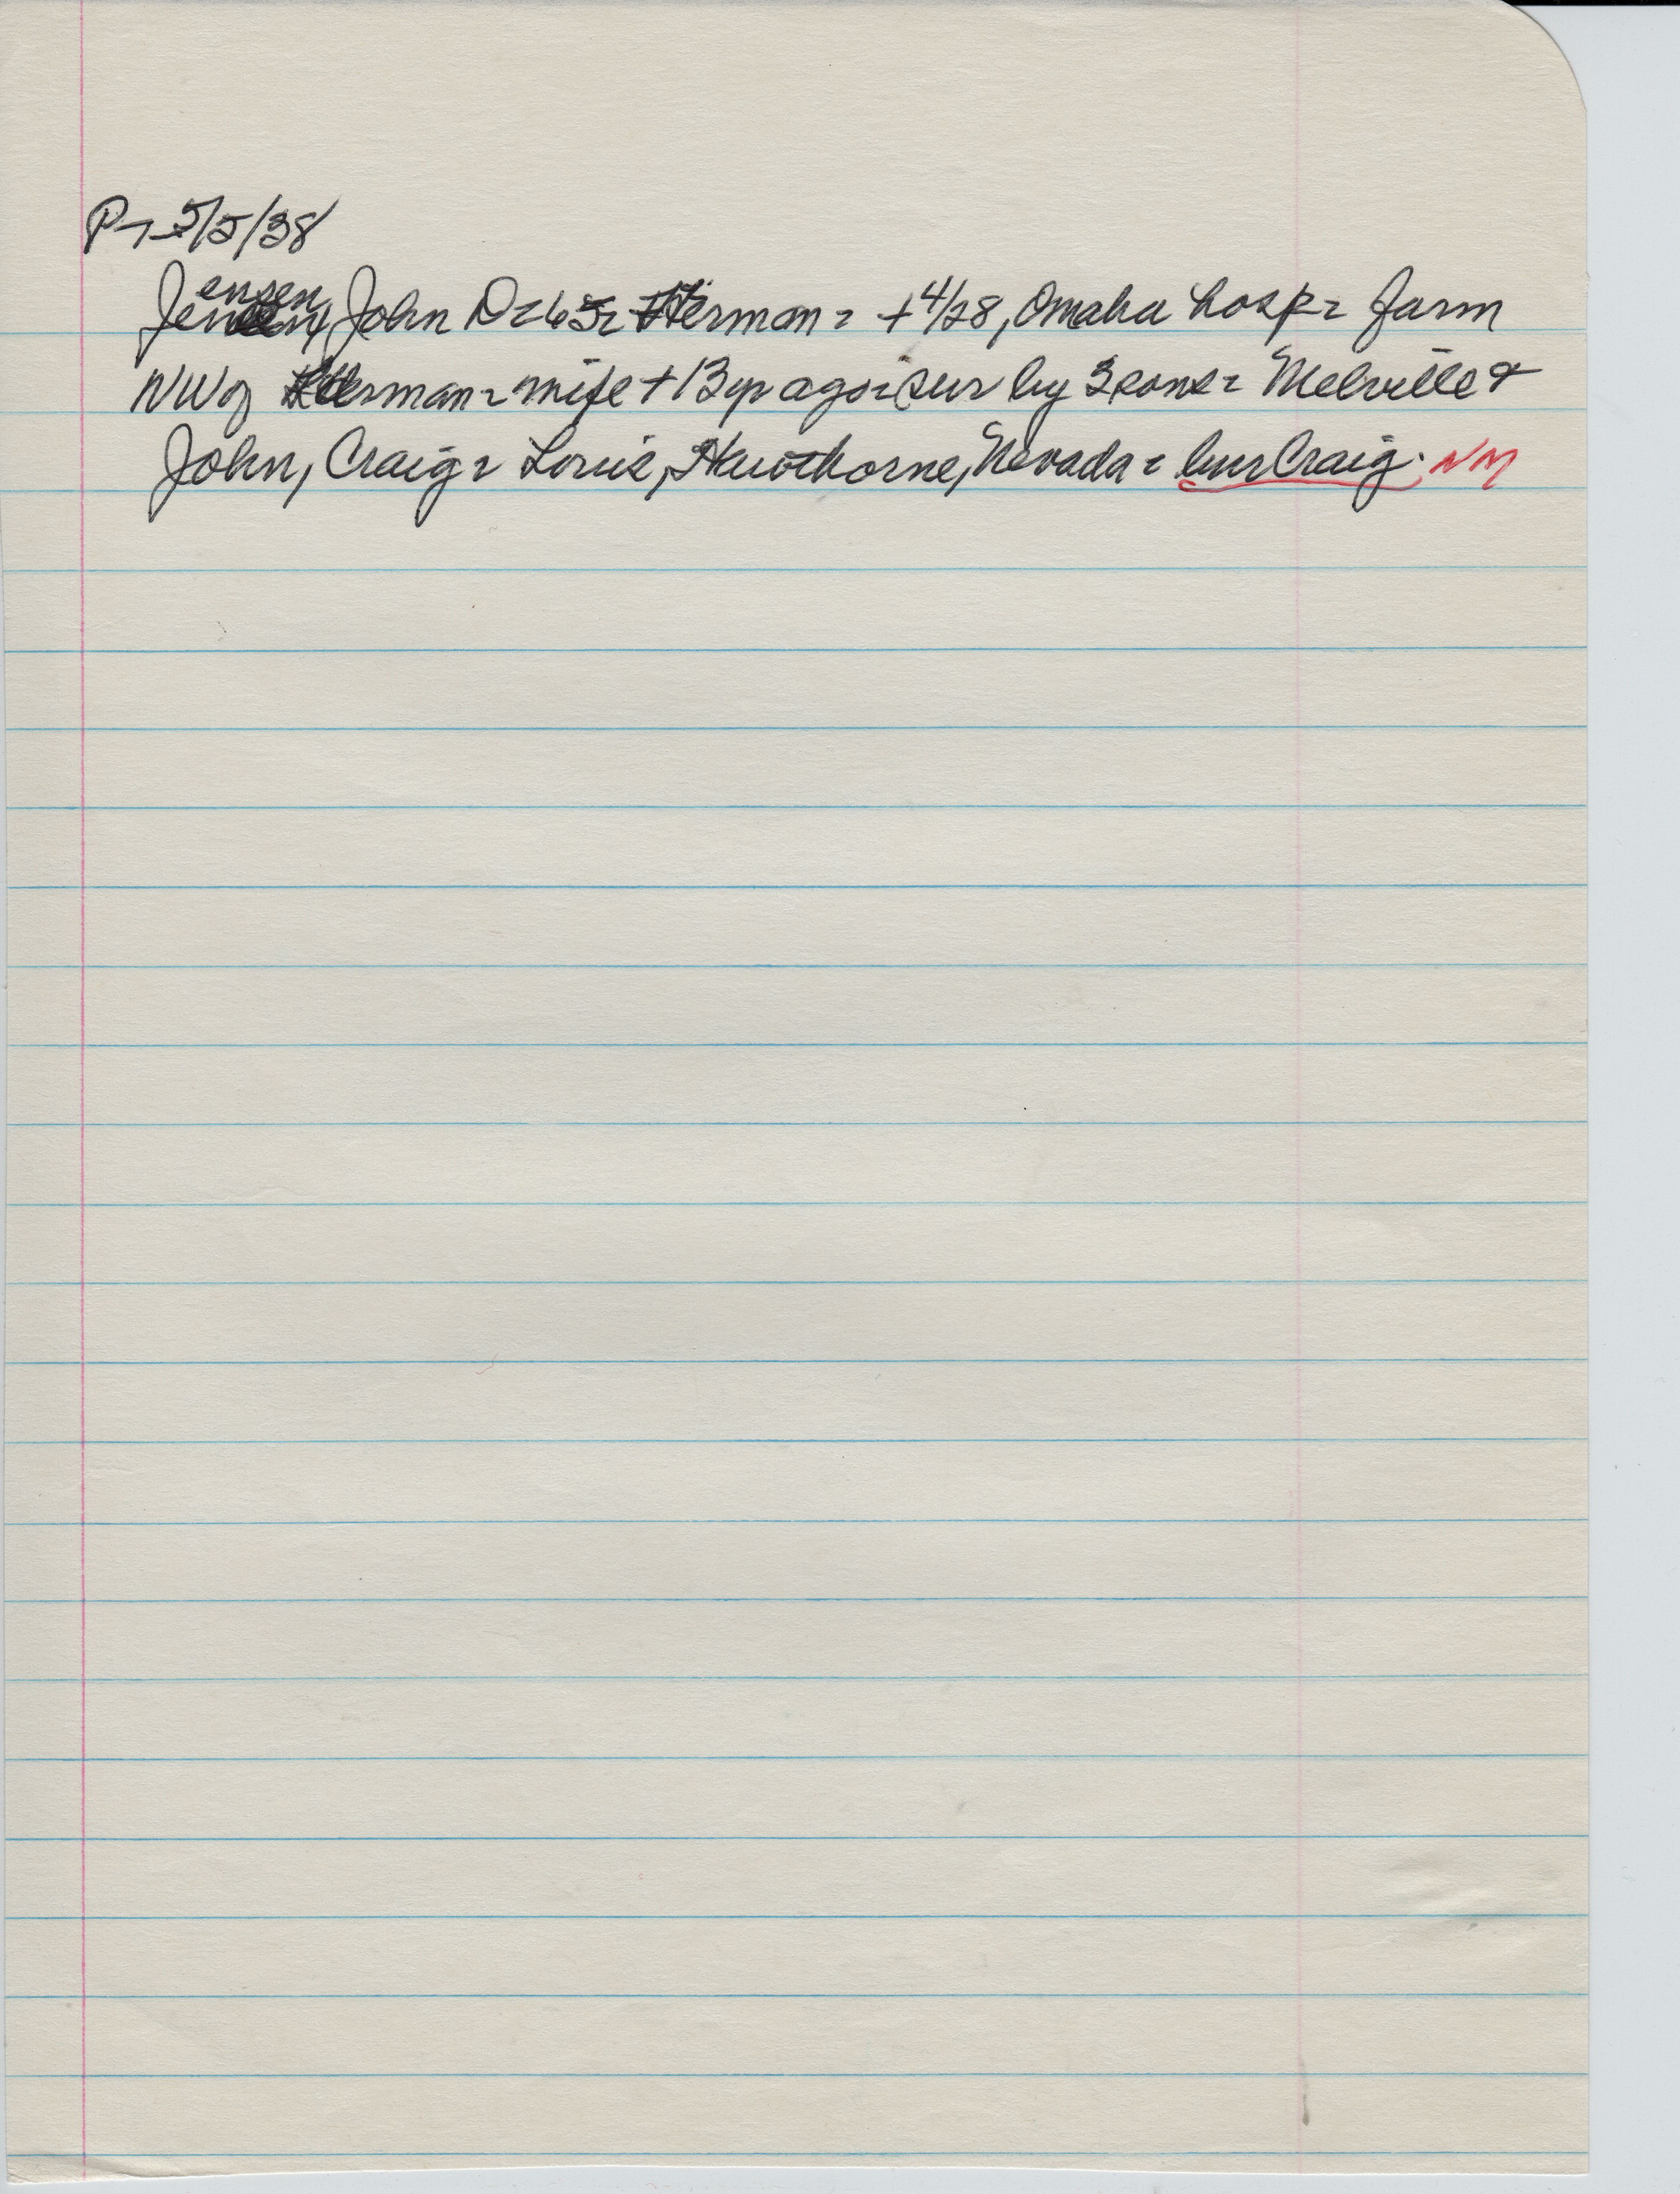 P-5/5/38
Jensen, John D - 65 - Herman - +4/28, Omaha hosp - farm
NW of Herman - wife + 13 yr ago - sur by 3 sons - Melville &
John, Craig - Louis, Hawthorne, Nevada - bur Craig. NM